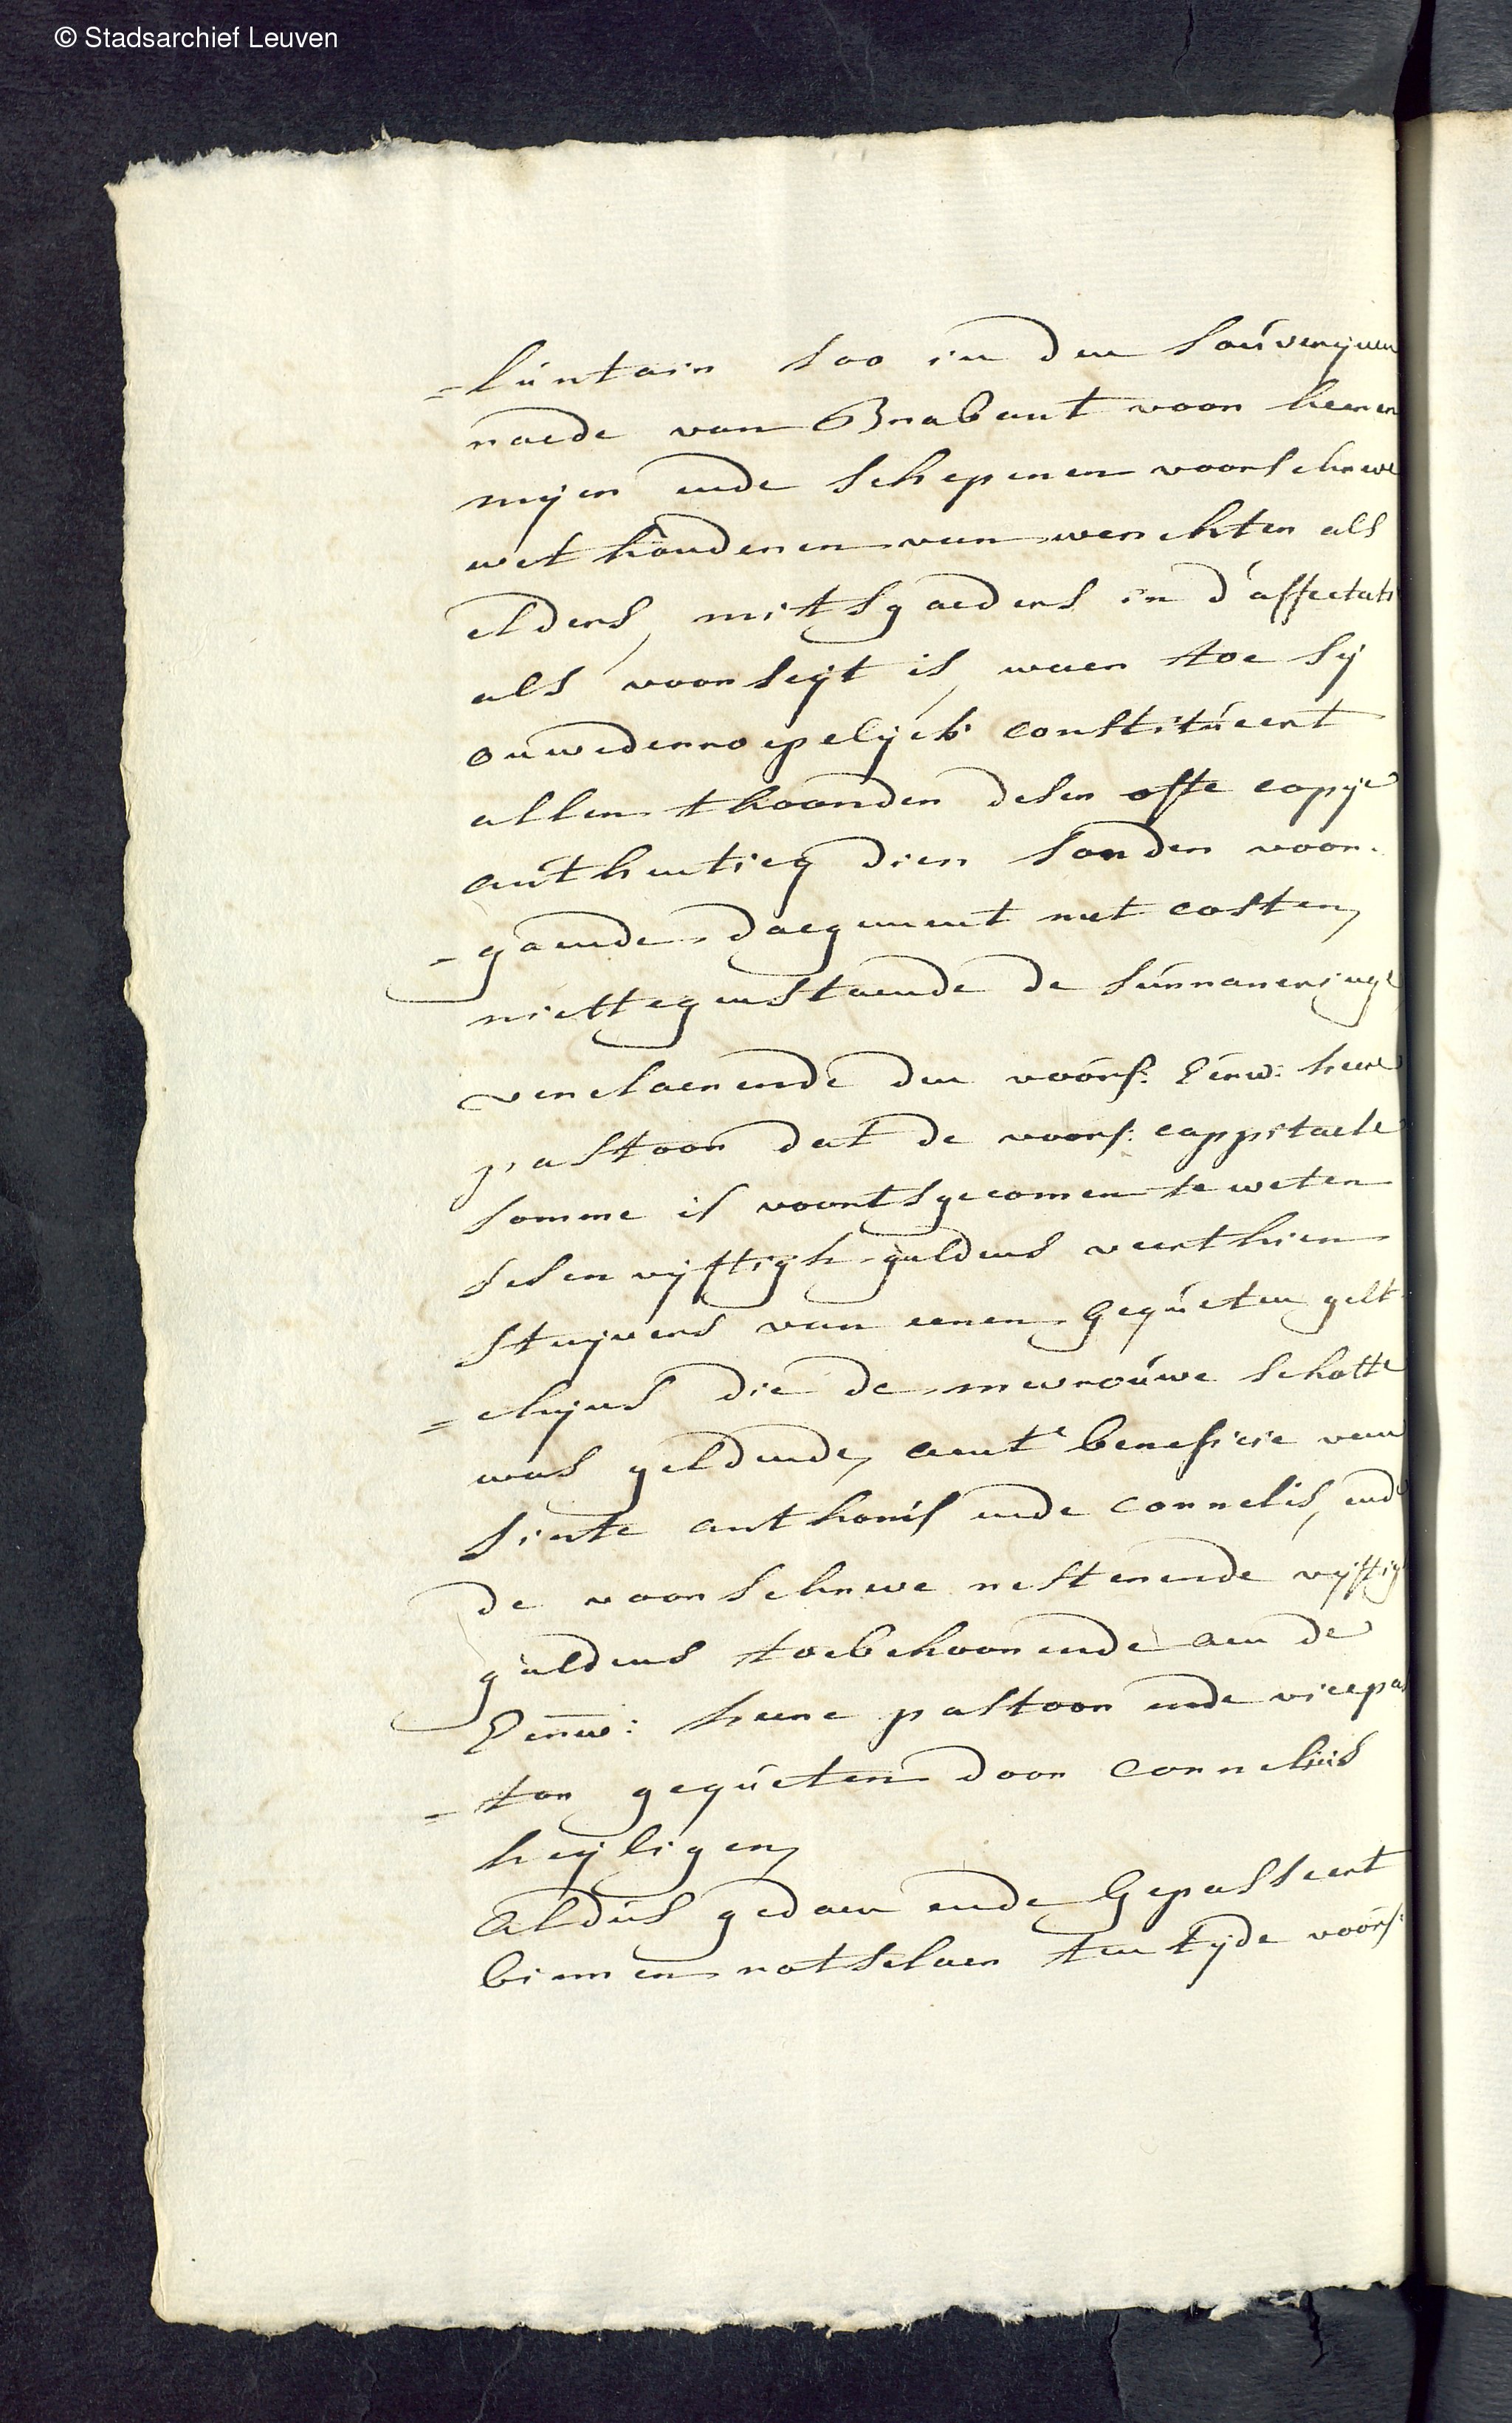 © Stadsarchief Leuven
=luntair soo in den Souverijnen
raede van Brabant voor heeren
mijer ende Schepenen voorschreve
wethouderen van werchter als
elders, mitsgaeders in d'affectatie
als voorseijt is, waer toe sij
onwederroepelijck constitueert
allen thoonder deser ofte copije
authenticq dier sonder voor-
-gaende daegement met costen,
niettegenstaende de surranneringe
verclaerende den voors: Eerw: heere
pastoor dat de voors: cappitaele
somme is voortsgecomen te weten
sesenvijftigh guldens veerthien
stuijvers van eenen gequeten gelt
=chijns die de mevrouwe schotte
was geldende, aen te beneficie van
sinte anthonis ende cornelis, ende
de voorschreve resterende vijftigh
guldens toebehoorende aen de
Eerw: heere pastoor ende vicepas
=tor gequeten door cornelius
heijligen,
Aldus gedaen ende gepasseert
binnen rotselaer ten tijde voors: